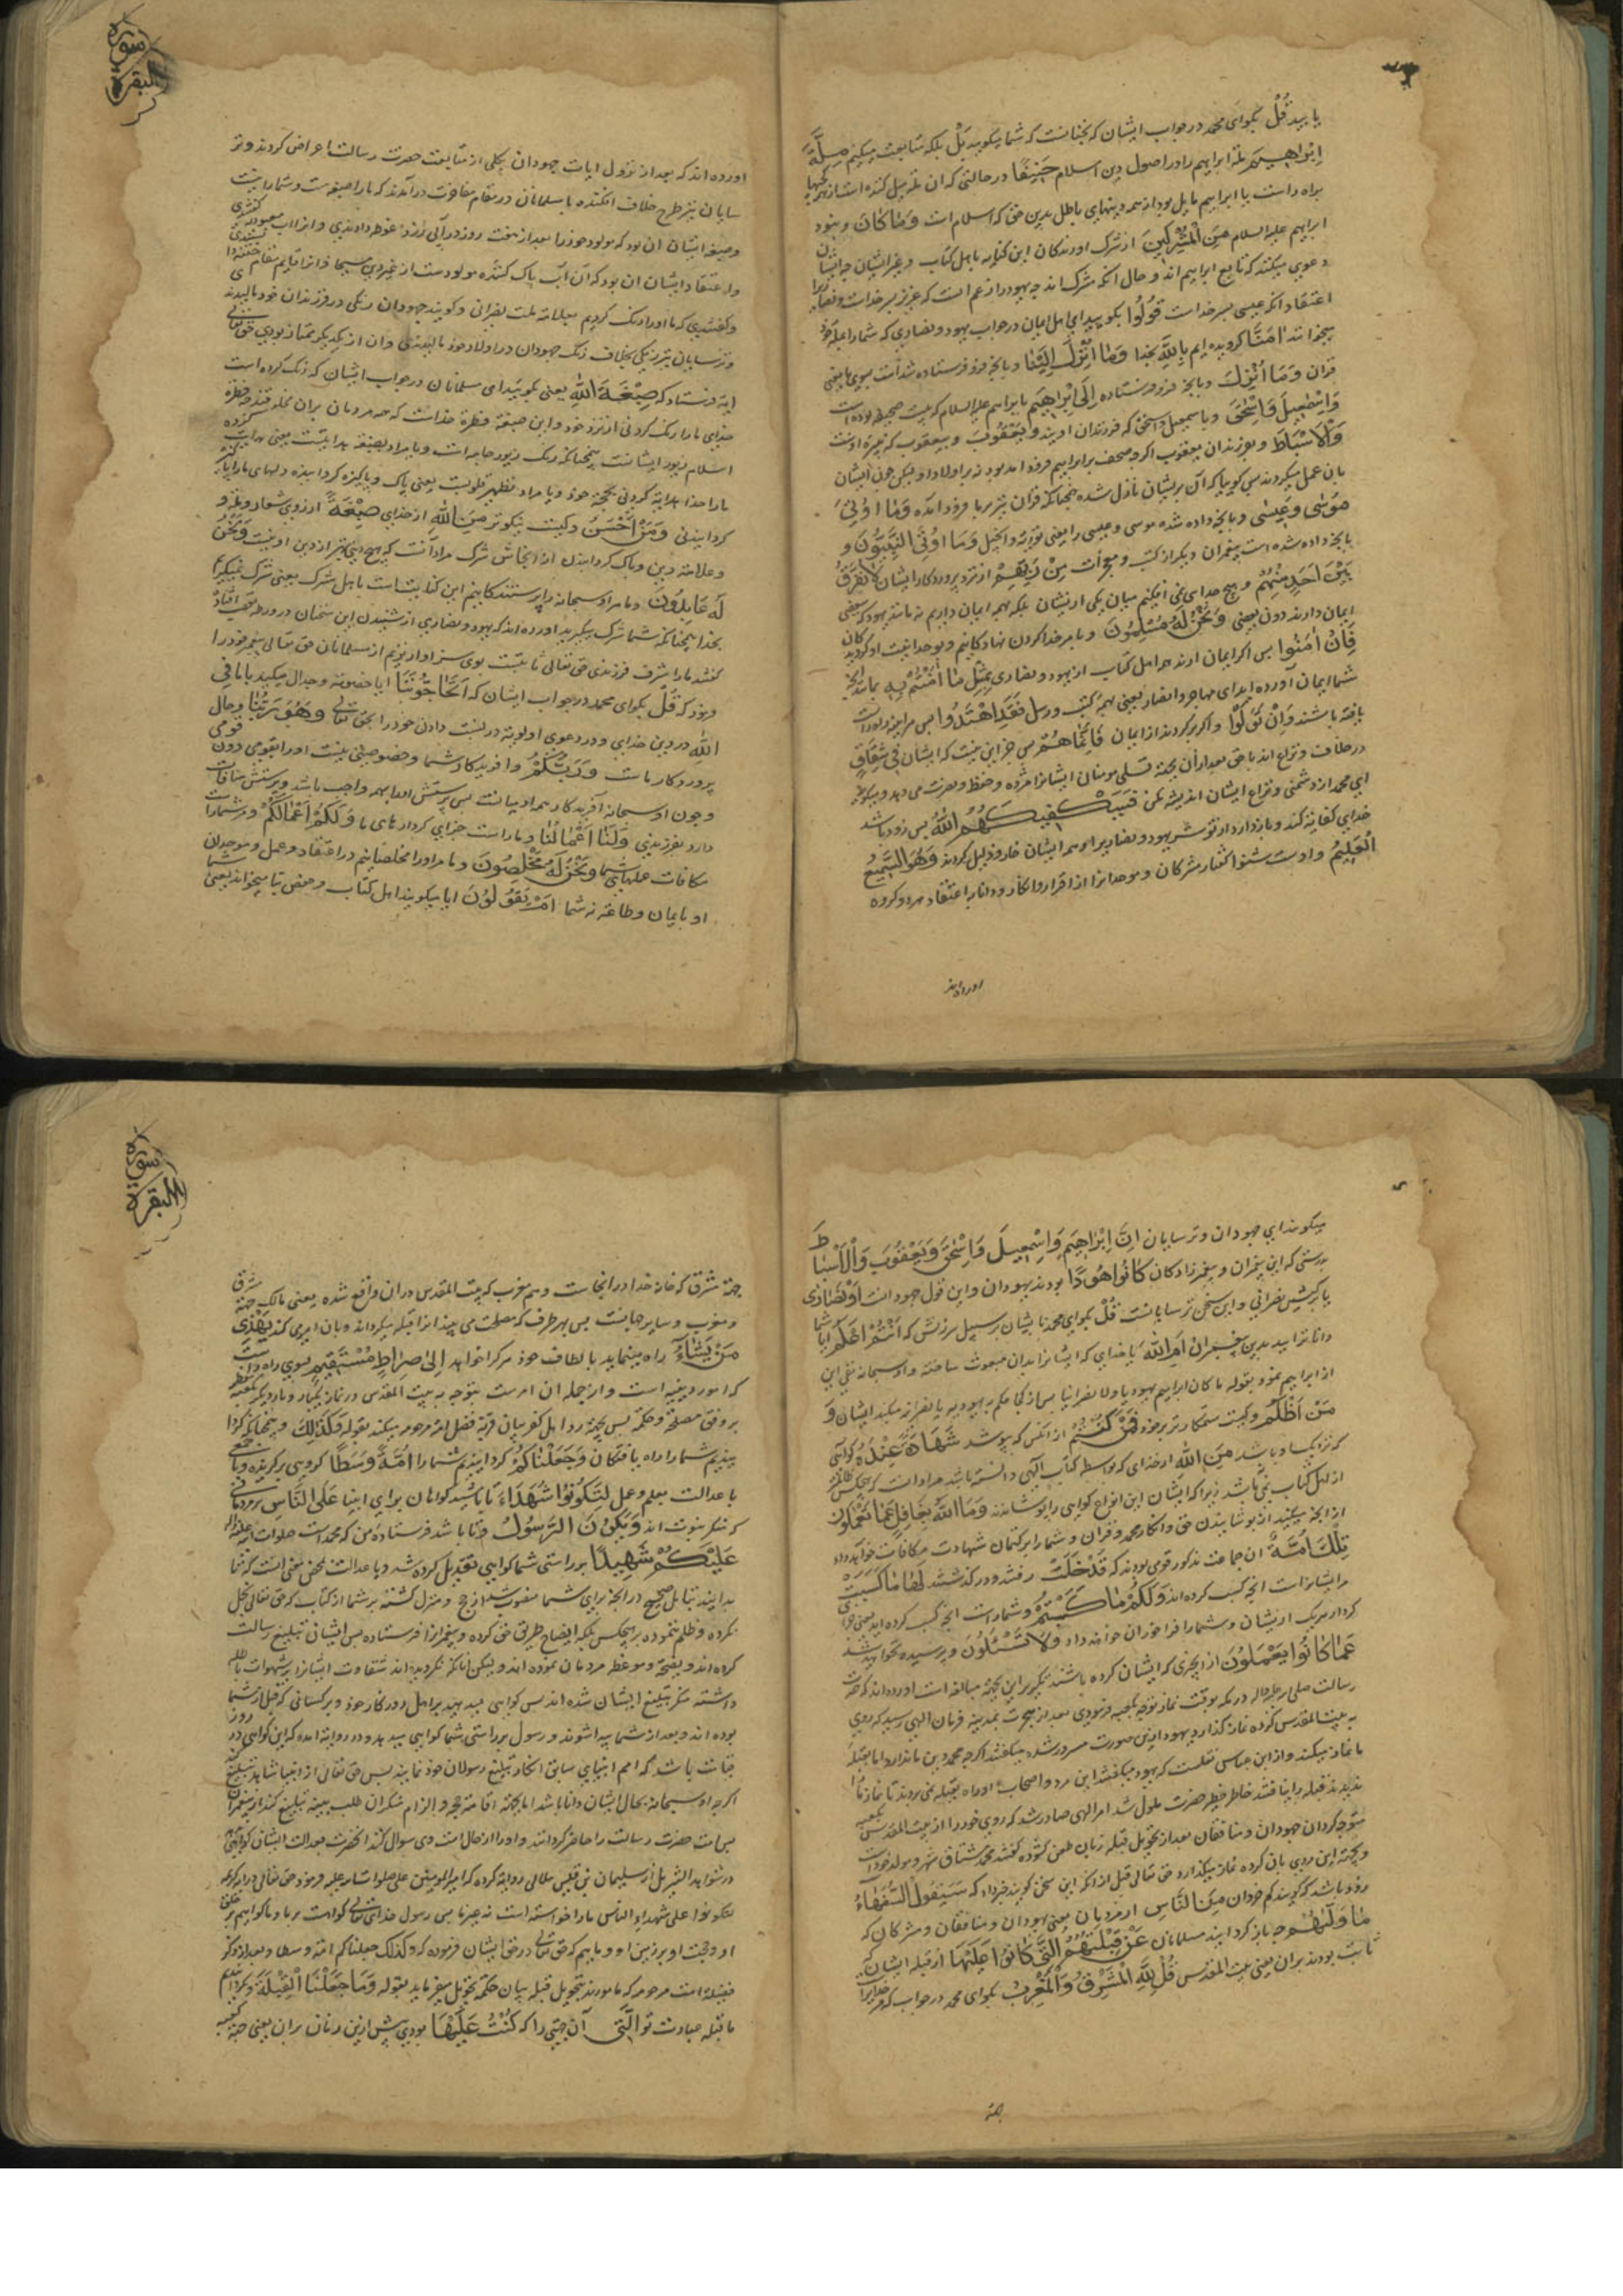 یابید قُلْ بکوای محمد در جواب ایشان که نچنانست که شما میکویید بَلْ بلکه متابعت میکنیم مِلَّةَ
اِبْرٰاهیمَ ملة ابراهیم را در اصول دین اسلام حَنیفًا در حالتی که ان ملة میل کننده است از همه کجیها
براه راست یا ابراهیم مایل بود از همه دینهای باطل بدین حق که اسلام است وَمٰا کٰانَ و نبود
ابراهیم علیه السلام مِنَ الْمُشْرِکینَ از شرک اورندکان این کنایه باهل کتاب و غیر ایشان چه ایشان
دعوی میکنند که تابع ابراهیم اند و حال انکه مشرک اند چه یهود را زعم است که عزیر پسر خداست و نصاری را
اعتقاد انکه عیسی پسر خداست قُولُوا بکویید ای اهل ایمان در جواب یهود و نصاری که شما را بملة خود
میخوانند اٰمَنّٰا کرویده ایم بِاللّٰهِ بخدا وَمٰا اُنْزِلَ اِلَیْنٰا و بانچه فرو فرستاده شد است بسوی ما یعنی
قران وَمٰا اُنْزِلَ و بانچه فرو فرستاده اِلٰی اِبْرٰاهیمَ بابراهیم علیه السلام که بیست صحیفه بوده است
وَاِسْمٰعیلَ وَاِسْحٰقَ و باسمعیل و اسحق که فرزندان اویند وَیَعْقُوبَ و بیعقوب که نبیره اوست
وَالْاَسْبٰاطِ و بفرزندان یعقوب اکرچه صحف بر ابراهیم فرود امد بود نه بر اولاد او لیکن چون ایشان
بان عمل میکردند پس کوییا که آن بریشان نازل شده همچنانکه قران نیز بر ما فرود آمده وَمٰا اُوتِیَ
مُوسٰی وَعیسٰی و بانچه داده شده موسی و عیسی را یعنی توریة و انجیل وَمٰا اُوتِیَ النَّبِیُّونَ و
بانچه داده شده است پیغمبران دیکر از کتب و معجزات مِنْ رَبِّهِمْ از نزد پروردکار ایشان لٰا نُفَرِّقُ
بَیْنَ اَحَدٍ مِنْهُمْ و هیچ جدایی نمی افکنیم میان یکی از یشان بلکه بهمه ایمان داریم نه مانند یهود که ببعضی
ایمان دارند دون بعضی وَنَحْنُ لَهُ مُسْلِمُونَ و ما مر خدا را کردن نهادکانیم و بوحدانیت او کرویدکان
فَاِنْ اٰمَنُوا پس اکر ایمان ارند مر اهل کتاب از یهود و نصاری بِمِثْلِ مٰا اٰمَنْتُمْ بِهِ بمانند انچه
شما ایمان آورده اید ای مهاجر و انصار یعنی بهمه کتب و رسل فَقَدِ اهْتَدَوْا پس هر اینه راه راست
یافته باشند وَاِنْ تَوَلَّوْا و اکر برکردند از ایمان فَاِنَّمٰا هُمْ پس جز این نیست که ایشان فی شِقٰاقٍ
در خلاف و نزاع اند با حق بعد از آن بجهة تسلی مومنان ایشانرا مژده و حفظ و نصرت می دهد و میکوید
ای محمد از دشمنی و نزاع ایشان اندیشه مکن فَسَیَکْفیکَهُمُ اللّٰهُ پس زود باشد
خدای کفایه کند و باز دارد از تو شر یهود و نصاری را و همه ایشان خار و ذلیل کردند وَهُوَ السَّمیعُ
الْعَلیمُ و اوست شنوا کفتار مشرکان و موحدانرا از اقرار و انکار و دانا به اعتقاد هر دو کروه
اورده اند
سورة البقرة
اورده اند که بعد از نزول ایات جهودان بکلی از متابعت حضرت رسالت اعراض کردند و تر
سایان نیز طرح خلاف افکنده با مسلمانان در مقام مفاخرت درآمدند که ما را صبغه ست و شما را نیست
و صبغه ایشان ان بود که مولود خود را بعد از هفت روز در آبی زرد غوطه دادندی و انرا اب معمودیه کفتندی
و اعتقاد ایشان ان بود که آن آب پاک کننده مولود ست از غیر دین مسیحا و انرا قایم مقام ختنه داشتندی
و کفتندی که ما اورا رنک کردیم بعلامة ملت نصرانی و کویند جهودان رنکی در فرزندان خود مالیدند
و ترسایان نیز رنکی بخلاف رنک جهودان در اولاد خود مالیدندی و ان از یکدیکر ممتاز بودی حق تعالی
ایه فرستاد که صِبْغَةَ اللّٰهِ یعنی بکویید ای مسلمانان در جواب ایشان که رنک کرده است
خدای ما را رنک کردنی از نزد خود و این صبغة فطرة خداست که همه مردمان بران مخلوقند چه فطرة
اسلام زیور ایشانست همچنانکه رنک زیور جامه است و یا مراد بصبغه هدایتست یعنی هدایت کرده
ما را خدا هدایة کردنی بحجة خود و یا مراد تطهیر قلوبست یعنی پاک و پاکیزه کردانیده دلهای ما را پاک
کردانیدنی وَمَنْ اَحْسَنُ و کیست نیکوتر مِنَ اللّٰهِ از خدای صِبْغَةً از روی شعار و ملة و
و علامة دین و پاک کردانیدن از انجاس شرک مراد آنست که هیچ دینی بهتر از دین او نیست وَنَحْنُ
لَهُ عٰابِدُونَ و ما مر او سبحانه را پرستندکانیم این کنایتست باهل شرک یعنی شرک نمیکیریم
بخدا همچنانکه شما شرک میکیرید اورده اند که یهود و نصاری از شنیدن این سخنان در ورطه تعجب افتاده
کفتند ما را شرف فرزندی حق تعالی ثابتست پس سزاوارتریم از مسلمانان حق تعالی پیغمبر خود را
فرمود که قُلْ بکوای محمد در جواب ایشان که اَتُحٰاجُّونَنٰا ایا خصومة و جدال میکنید با ما فِی
اللّٰهِ در دین خدای و در دعوی اولویة در نسبت دادن خود را بحق تعالی وَهُوَ رَبُّنٰا و حال
پروردکار ماست وَرَبُّکُمْ و افریدکار شما و خصوصیتی نیست اورا بقومی دون قومی
و چون او سبحانه آفریدکار همه ادمیانست پس پرستش اورا بهمه واجب باشد و پرستش منافات
دارد بفرزندی وَلَنٰا اَعْمٰالُنٰا و ما راست جزای کردارهای ما وَلَکُمْ اَعْمٰالُکُمْ و مر شما راست
مکافات عملهای شما وَنَحْنُ لَهُ مُخْلِصُونَ و ما مر اورا مخلصانیم در اعتقاد و عمل و موحدان
او بایمان و طاعة نه شما اَمْ تَقُولُونَ ایا میکویند اهل کتاب و حفص بتا میخواند یعنی شما
میکویند ای جهودان و ترسایان اِنَّ اِبْرٰاهیمَ وَاِسْمٰعیلَ وَاِسْحٰقَ وَیَعْقُوبَ وَالْاَسْبٰاطَ
بدرستی که این پیغمبران و پیغمبر زادکان کٰانُوا هُودًا بودند یهودان و این قول جهودانست اَوْ نَصٰارٰی
یا برکیش نصرانی و این سخن ترسایانست قُلْ بکوای محمد بایشان بر سبیل سرزنش که ءَاَنْتُمْ اَعْلَمُ ایا شما
دانا ترایید بدین پیغمبران اَمِ اللّٰهُ یا خدای که ایشانرا بدان مبعوث ساخته و او سبحانه نفی این
از ابراهیم نمود بقوله ما کان ابراهیم یهودیا ولا نصرانیا پس از کجا حکم به یهودیه یا نصرانیه میکنید ایشان وَ
مَنْ اَظْلَمُ و کیست ستمکارتر بر خود مِمَّنْ کَتَمَ از انکس که بپوشد شَهٰادَةً عِنْدَهُ کواهی
که نزدیک او باشد مِنَ اللّٰهِ از خدای که بواسطه کتاب الهی دانسته باشد مراد انست که هیچکس ظالمتر
از اهل کتاب نمی باشد زیرا که ایشان این انواع کواهی را پوشانند وَمَا اللّٰهُ بِغٰافِلٍ عَمّٰا تَعْمَلُونَ
از انچه میکنید از پوشانیدن حق و انکار محمد و قران و شما را بر کتمان شهادت مکافات خواهد داد
تِلْکَ اُمَّةٌ ان جماعت مذکور قومی بودند که قَدْ خَلَتْ رفتند و در کذشتند لَهٰا مٰا کَسَبَتْ
مر ایشانراست انچه کسب کرده اند وَلَکُمْ مٰا کَسَبْتُمْ و شما راست انچه کسب کرده اید یعنی جزای
کردار هریک از یشان و شما را فراخور ان خواهد داد وَلٰا تُسْئَلُونَ و پرسیده نخواهید شد
عَمّٰا کٰانُوا یَعْمَلُونَ از انچیزی که ایشان کرده باشند تکریر این بجهة مبالغه است اورده اند که حضرت
رسالت صلی الله علیه واله در مکه بوقت نماز توجه بکعبه فرمودی بعد از هجرت بمدینه فرمان الهی رسید که روی
به بیت المقدس کرده نماز کذارد یهود ازین صورت مسرور شده میکفتند اکرچه محمد دین ما ندارد اما بقبله
ما نماز میکند و از ابن عباس نقلست که یهود میکفتند این مرد و اصحاب او راه بقبله نمی بردند تا نماز ما را
ندیدند قبله را نیافتند خاطر خطیر حضرت ملول شد امر الهی صادر شد که روی خود را از بیت المقدس بکعبه
متوجه کردان جهودان و منافقان بعد از تحویل قبله زبان طعن کشوده کفتند محمد مشتاق شهر و مولد خود است
و بجهة این روی بان کرده نماز میکذارد حق تعالی قبل از انکه این سخن کویند خبر داد که سَیَقُولُ السُّفَهٰاءُ
زود باشد که کویند کم خردان مِنَ النّٰاسِ از مردمان یعنی یهودان و منافقان و مشرکان که
مٰا وَلّٰیهُمْ چه باز کردانید مسلمانان عَنْ قِبْلَتِهِمُ الَّتی کٰانُوا عَلَیْهٰا از قبله ایشان که
ثابت بودند بران یعنی بیت المقدس قُلْ لِلّٰهِ الْمَشْرِقُ وَالْمَغْرِبُ بکوای محمد در جواب که مر خدایراست
جهة
سورة البقرة
جهة مشرق که خانه خدا در انجاست و هم مغرب که بیت المقدس دران واقع شده یعنی مالک جهة مشرق
و مغرب و سایر جهاتست پس بهر طرف که مصلحت می بیند انرا قبله میکرداند و بان امر می کند یَهْدی
مَنْ یَشٰاءُ راه مینماید بالطاف خود هرکرا خواهد اِلٰی صِرٰاطٍ مُسْتَقیمٍ بسوی راه راست
که امور دینیه است و از جمله ان امرست بتوجه به بیت المقدس در نماز یکبار و بار دیکر بکعبه
بر وفق مصلحة و حکمة پس بجهة رد اهل کفر بیان مرتبه فضل امة مرحومه میکند بقوله وَکَذٰلِکَ و همچنانکه کردا
نیدیم شما را راه یافتکان وَجَعَلْنٰاکُمْ کردانیدیم شما را اُمَّةً وَسَطًا کروهی برکزیده و یا جمعی
با عدالت بعلم و عمل لِتَکُونُوا شُهَدٰاءَ تا باشید کواهان برای انبیا عَلَی النّٰاسِ بر مردمانی
که منکر نبوت اند وَیَکُونَ الرَّسُولُ و تا باشد فرستاده من که محمد است صلوات الله علیه واله
عَلَیْکُمْ شَهیدًا بر راستی شما کواهی تعدیل کرده شد و با عدالت
کرده اند و بنصیحة و موعظه مردمان نموده اند و لیکن انانکه نکرویده اند شقاوت ایشانرا بر شهوات باطله
داشته منکر تبلیغ ایشان شده اند پس کواهی میدهید بر اهل روزکار خود و بر کسانی که قبل از شما
بوده اند و بعد از شما پیدا شوند و رسول بر راستی شما کواهی میدهد و در روایة امده که این کواهی در روز
قیامت باشد که امم انبیای سابق انکار تبلیغ رسولان خود نمایند پس حق تعالی از انبیا شاهد تبلیغ
اکرچه او سبحانه بحال ایشان دانا باشد اما بجهة اقامة حجة و الزام منکران طلب بینه تبلیغ کند از پیغمبران
پس امت حضرت رسالت را حاضر کردانند و اورا از حال امت وی سوال کنند انحضرت بعدالت ایشان کواهی دهد
در شواهد التنزیل از سلیمان بن قیس هلالی روایة کرده که امیر المومنین علی صلوات الله علیه فرمود حق تعالی در ایه کریمه
لتکونوا علی شهداء الناس ما را خواسته است نه جز ما پس رسول خدای تعالی کواهست بر ما و ما کواهیم بر خلق
او و حجت او بر زمین او و ماییم که حق تعالی در حق ایشان فرموده که وکذلک جعلناکم امة وسطا و بعد از ذکر
فضیلة امت مرحومه که مامورند بتحویل قبله بیان حکمة تحویل میفرماید بقوله وَمٰا جَعَلْنَا الْقِبْلَةَ
ما قبله عبادت تو الَّتی آن جهتی را که کُنْتَ عَلَیْهٰا بودی پیش ازین زمان بران یعنی جهة کعبه